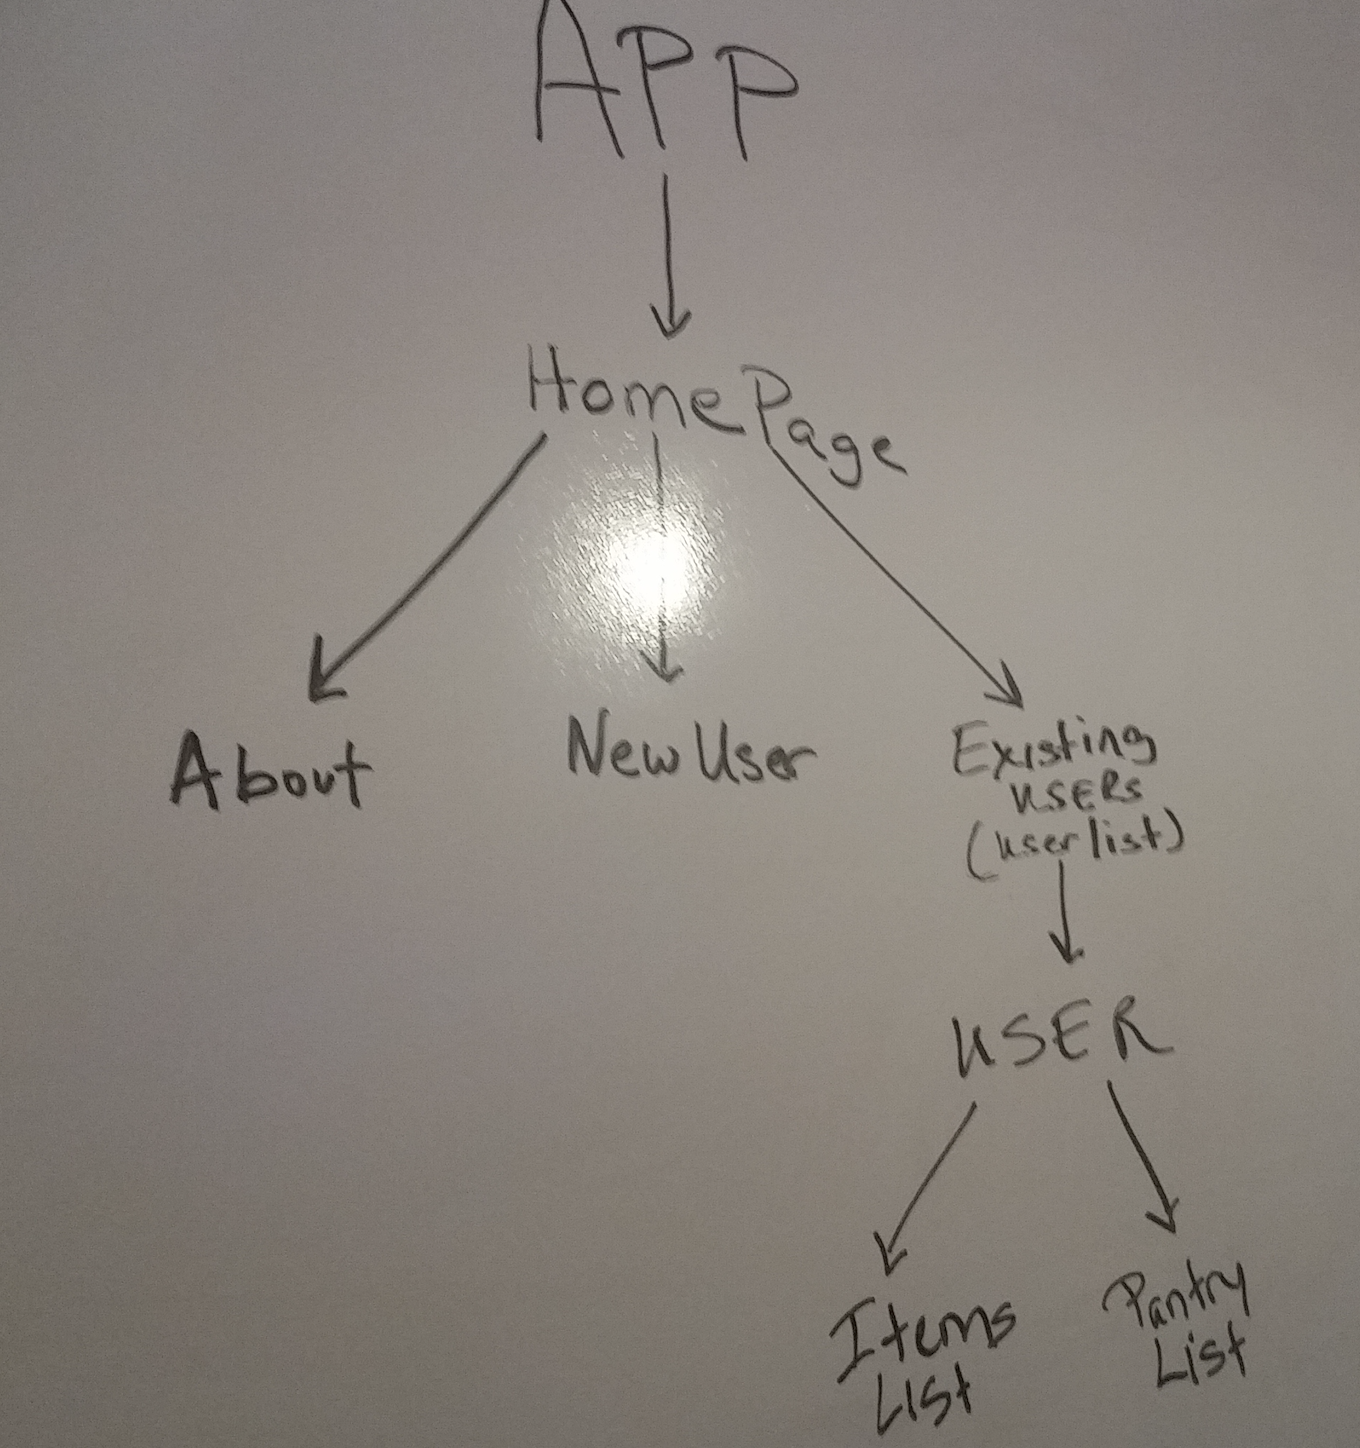 APP
HomePage
About
New User
Existing
USERs
(userlist)
USER
Items
List
Pantry
List